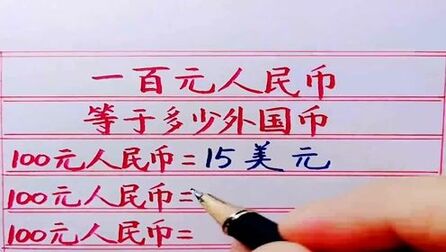 一百元人民币
等于多少外国币
100元人民币=15美元
100元人民币=
100元人民币=